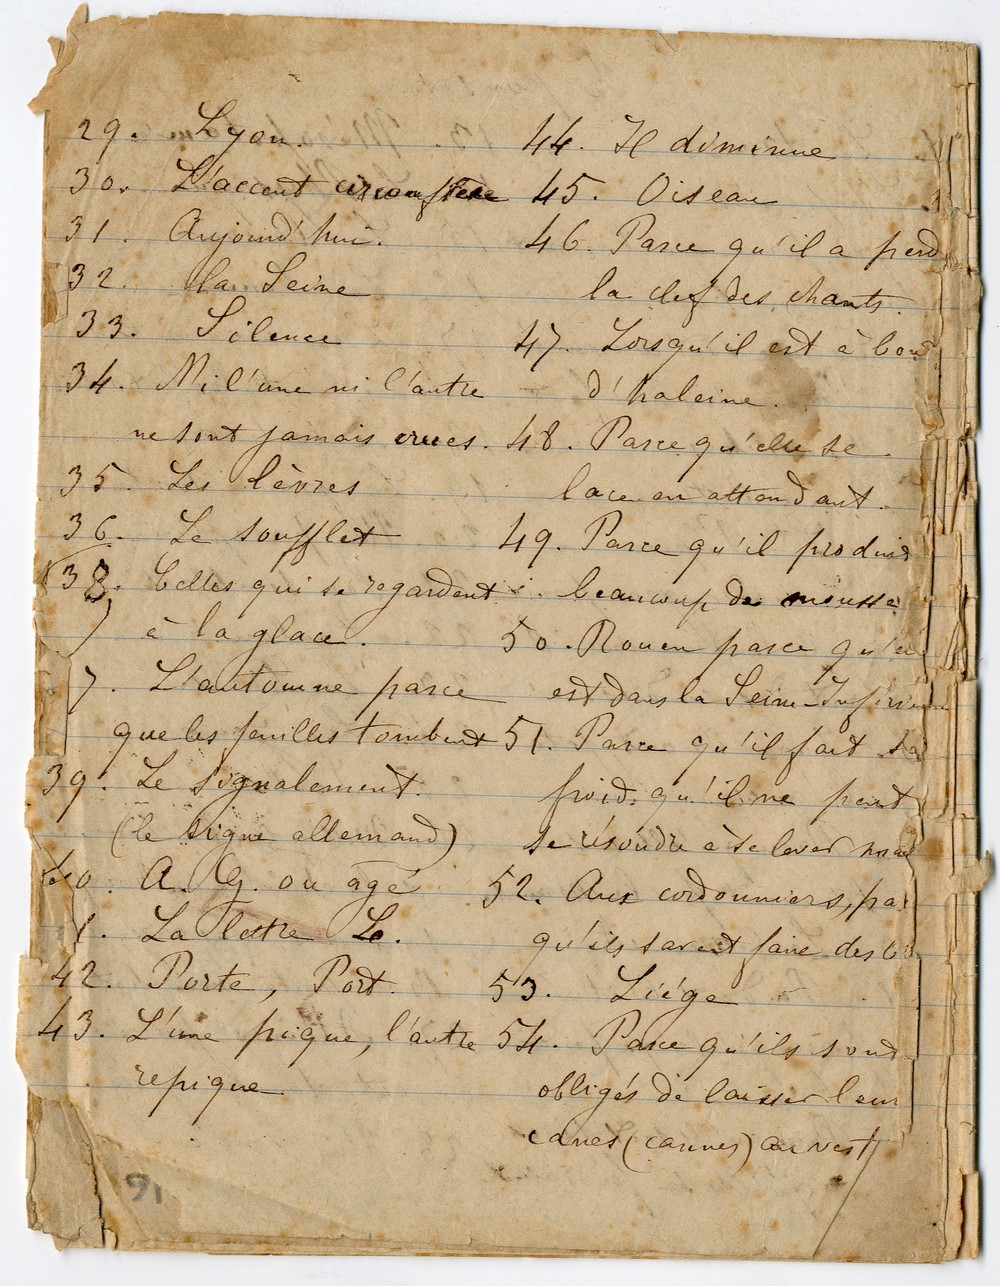 29. Lyon.
30. L'accent circonflexe
31. Aujourd'hui.
32. la Seine
33. Silence
34. Ni l'une ni l'autre
ne sont jamais crues.
35. Les lèvres
36. Le soufflet
38. Celles qui se regardent
à la glace.
7. L'automne parce
que les feuilles tombent
39. Le signalement.
(le signe allemand)
40. A. G. ou agé
1. La lettre L.
42. Porte, Port.
43. L'une pique, l'autre
repique
44. Il diminue
45. Oiseau
46. Parce qu'il a perd
la clef des chants.
47. Lorsqu'il est à bou
d'haleine.
48. Parce qu'elle se
lace en attendant.
49. Parce qu'il produit
beaucoup de mousse
50. Rouen parce qu'e
est dans la Seine-Inférieu
51. Parce qu'il fait
froid, qu'il ne peut
se résoudre à se lever
52. Aux cordonniers, pa
qu'ils savent faire des
53. Liége
54. Parce qu'ils sont
obligés de laisser leur
canes (cannes) au vest
91